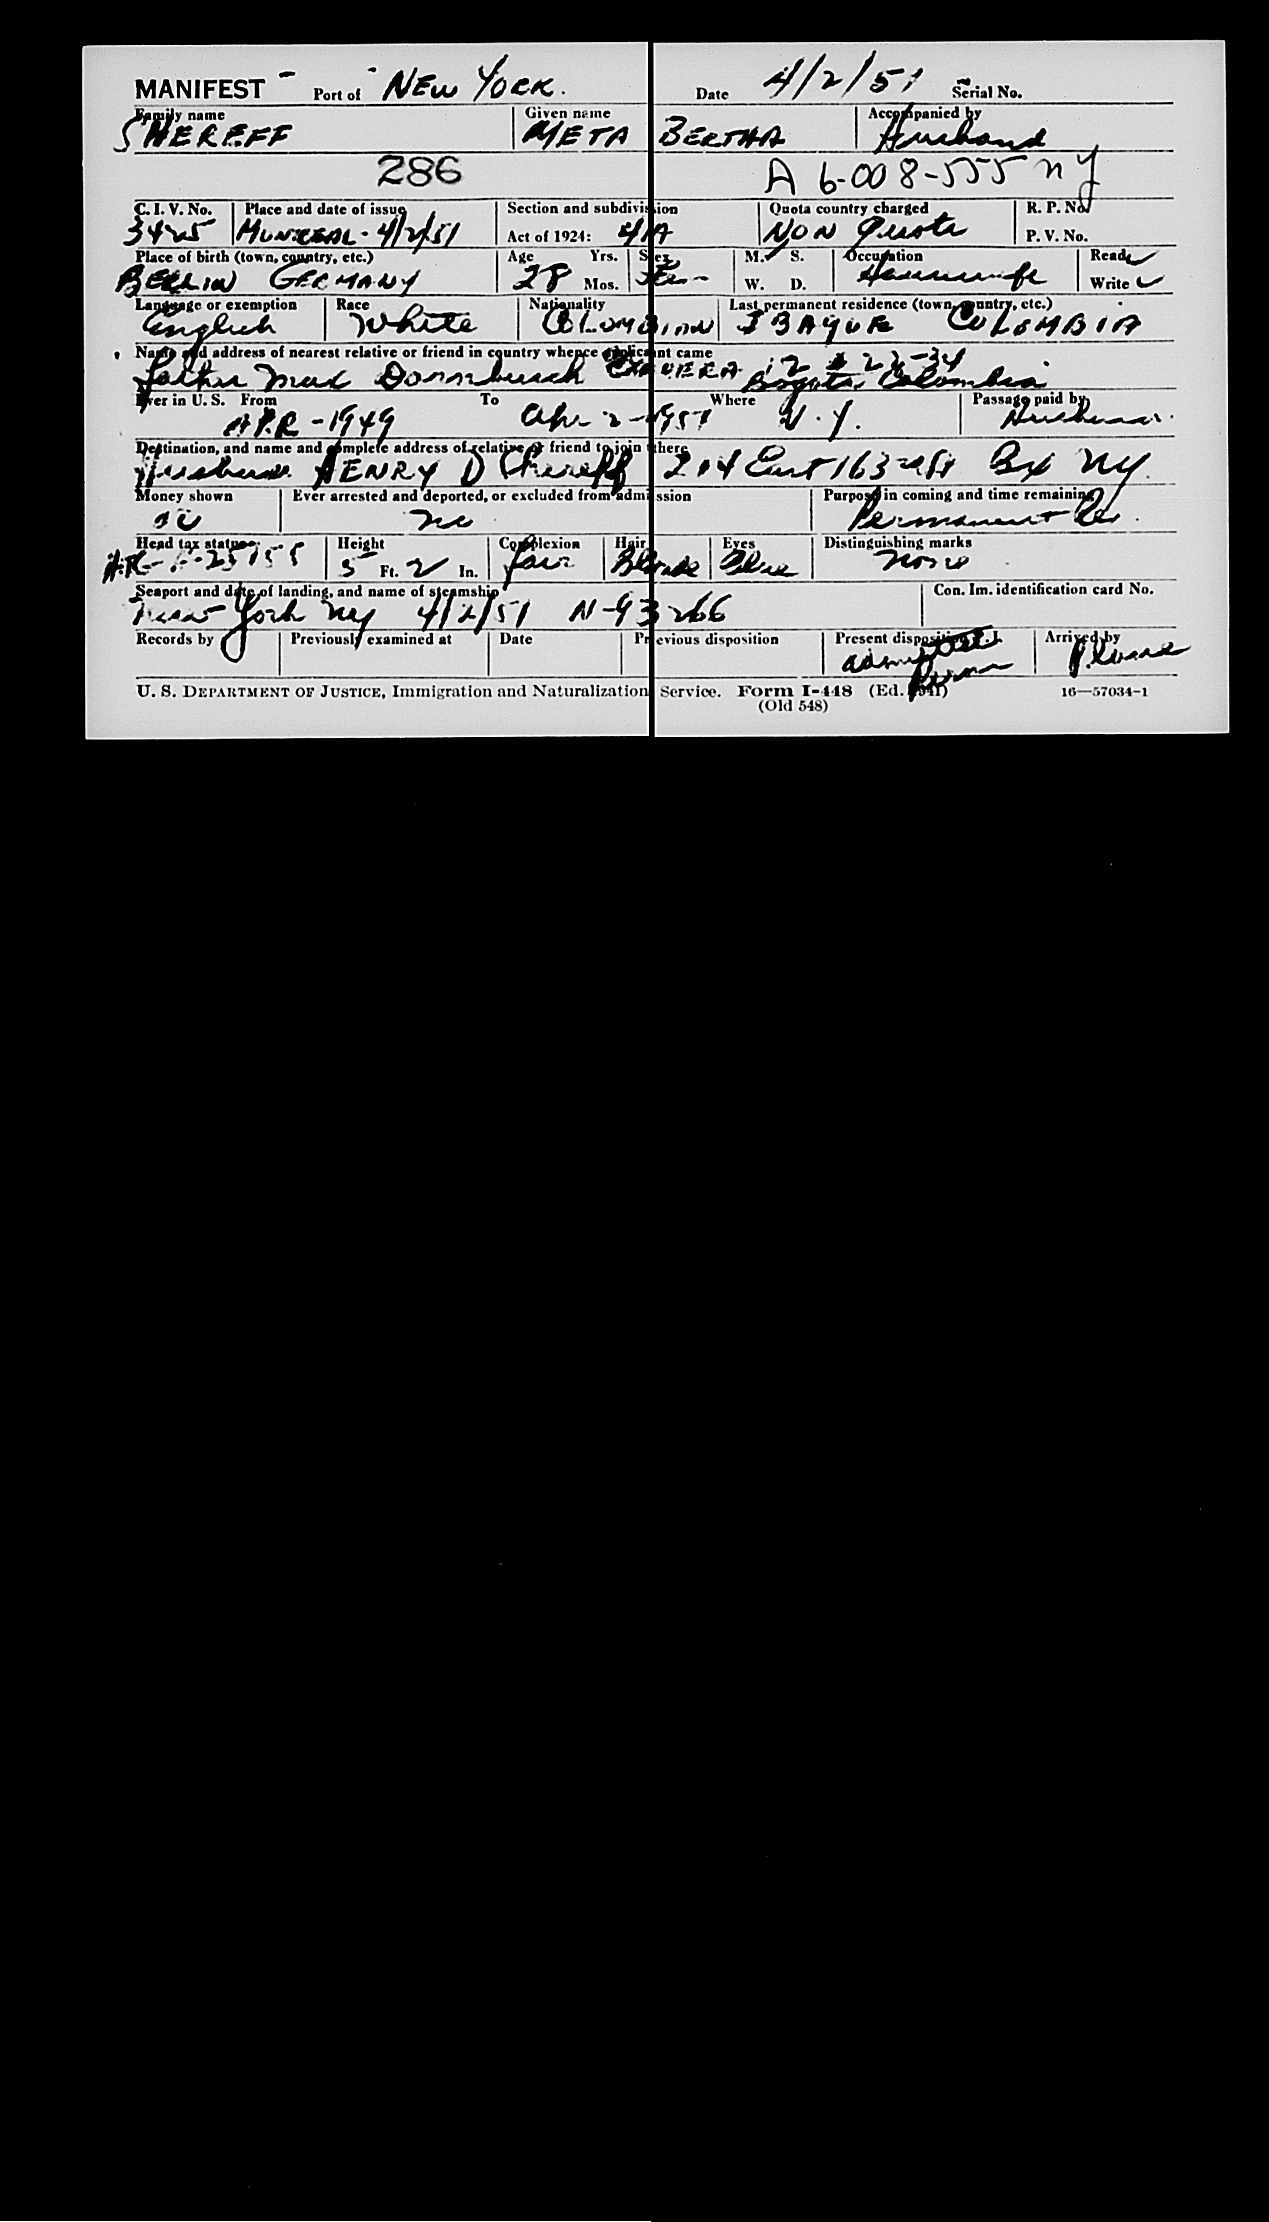 MANIFEST - Port of NEW YORK. Date 4/2/51 Serial No.
Family name Given name Accompanied by
SHEREFF META BERTHA Husband
286 A 6-008-555 NY
C. I. V. No. Place and date of issue Section and subdivision Quota country charged R. P. No.
3425 MONTREAL - 4/2/51 Act of 1924: 4/A NON Quota P. V. No.
Place of birth (town, country, etc.) Age Yrs. Sex M. ✓ S. Occupation Read ✓
BERLIN GERMANY 28 Mos. Fem- W. D. Housewife Write ✓
Language or exemption Race Nationality Last permanent residence (town, country, etc.)
English White COLOMBIAN IBAGUE COLOMBIA
Name and address of nearest relative or friend in country whence applicant came
Father Max Dornbusch 12 # 22-34 Bogota, Colombia
Ever in U. S. From To Where Passage paid by
APR - 1949 Apr 2 - 1951 N. Y. Husband
Destination, and name and complete address of relative or friend to join there
Husband HENRY D Shereff 204 East 163 St Bx NY.
Money shown Ever arrested and deported, or excluded from admission Purpose in coming and time remaining
no Permanent Res.
Head tax status Height Complexion Hair Eyes Distinguishing marks
5 Ft. 2 In. fair Blonde Blue None
Seaport and date of landing, and name of steamship Con. Im. identification card No.
New York NY 4/2/51 N-93266
Records by Previously examined at Date Previous disposition Present disposition Arrived by
admitted Perm
U. S. DEPARTMENT OF JUSTICE, Immigration and Naturalization Service. Form I-448 (Ed. 1941) 16—57034-1
(Old 548)